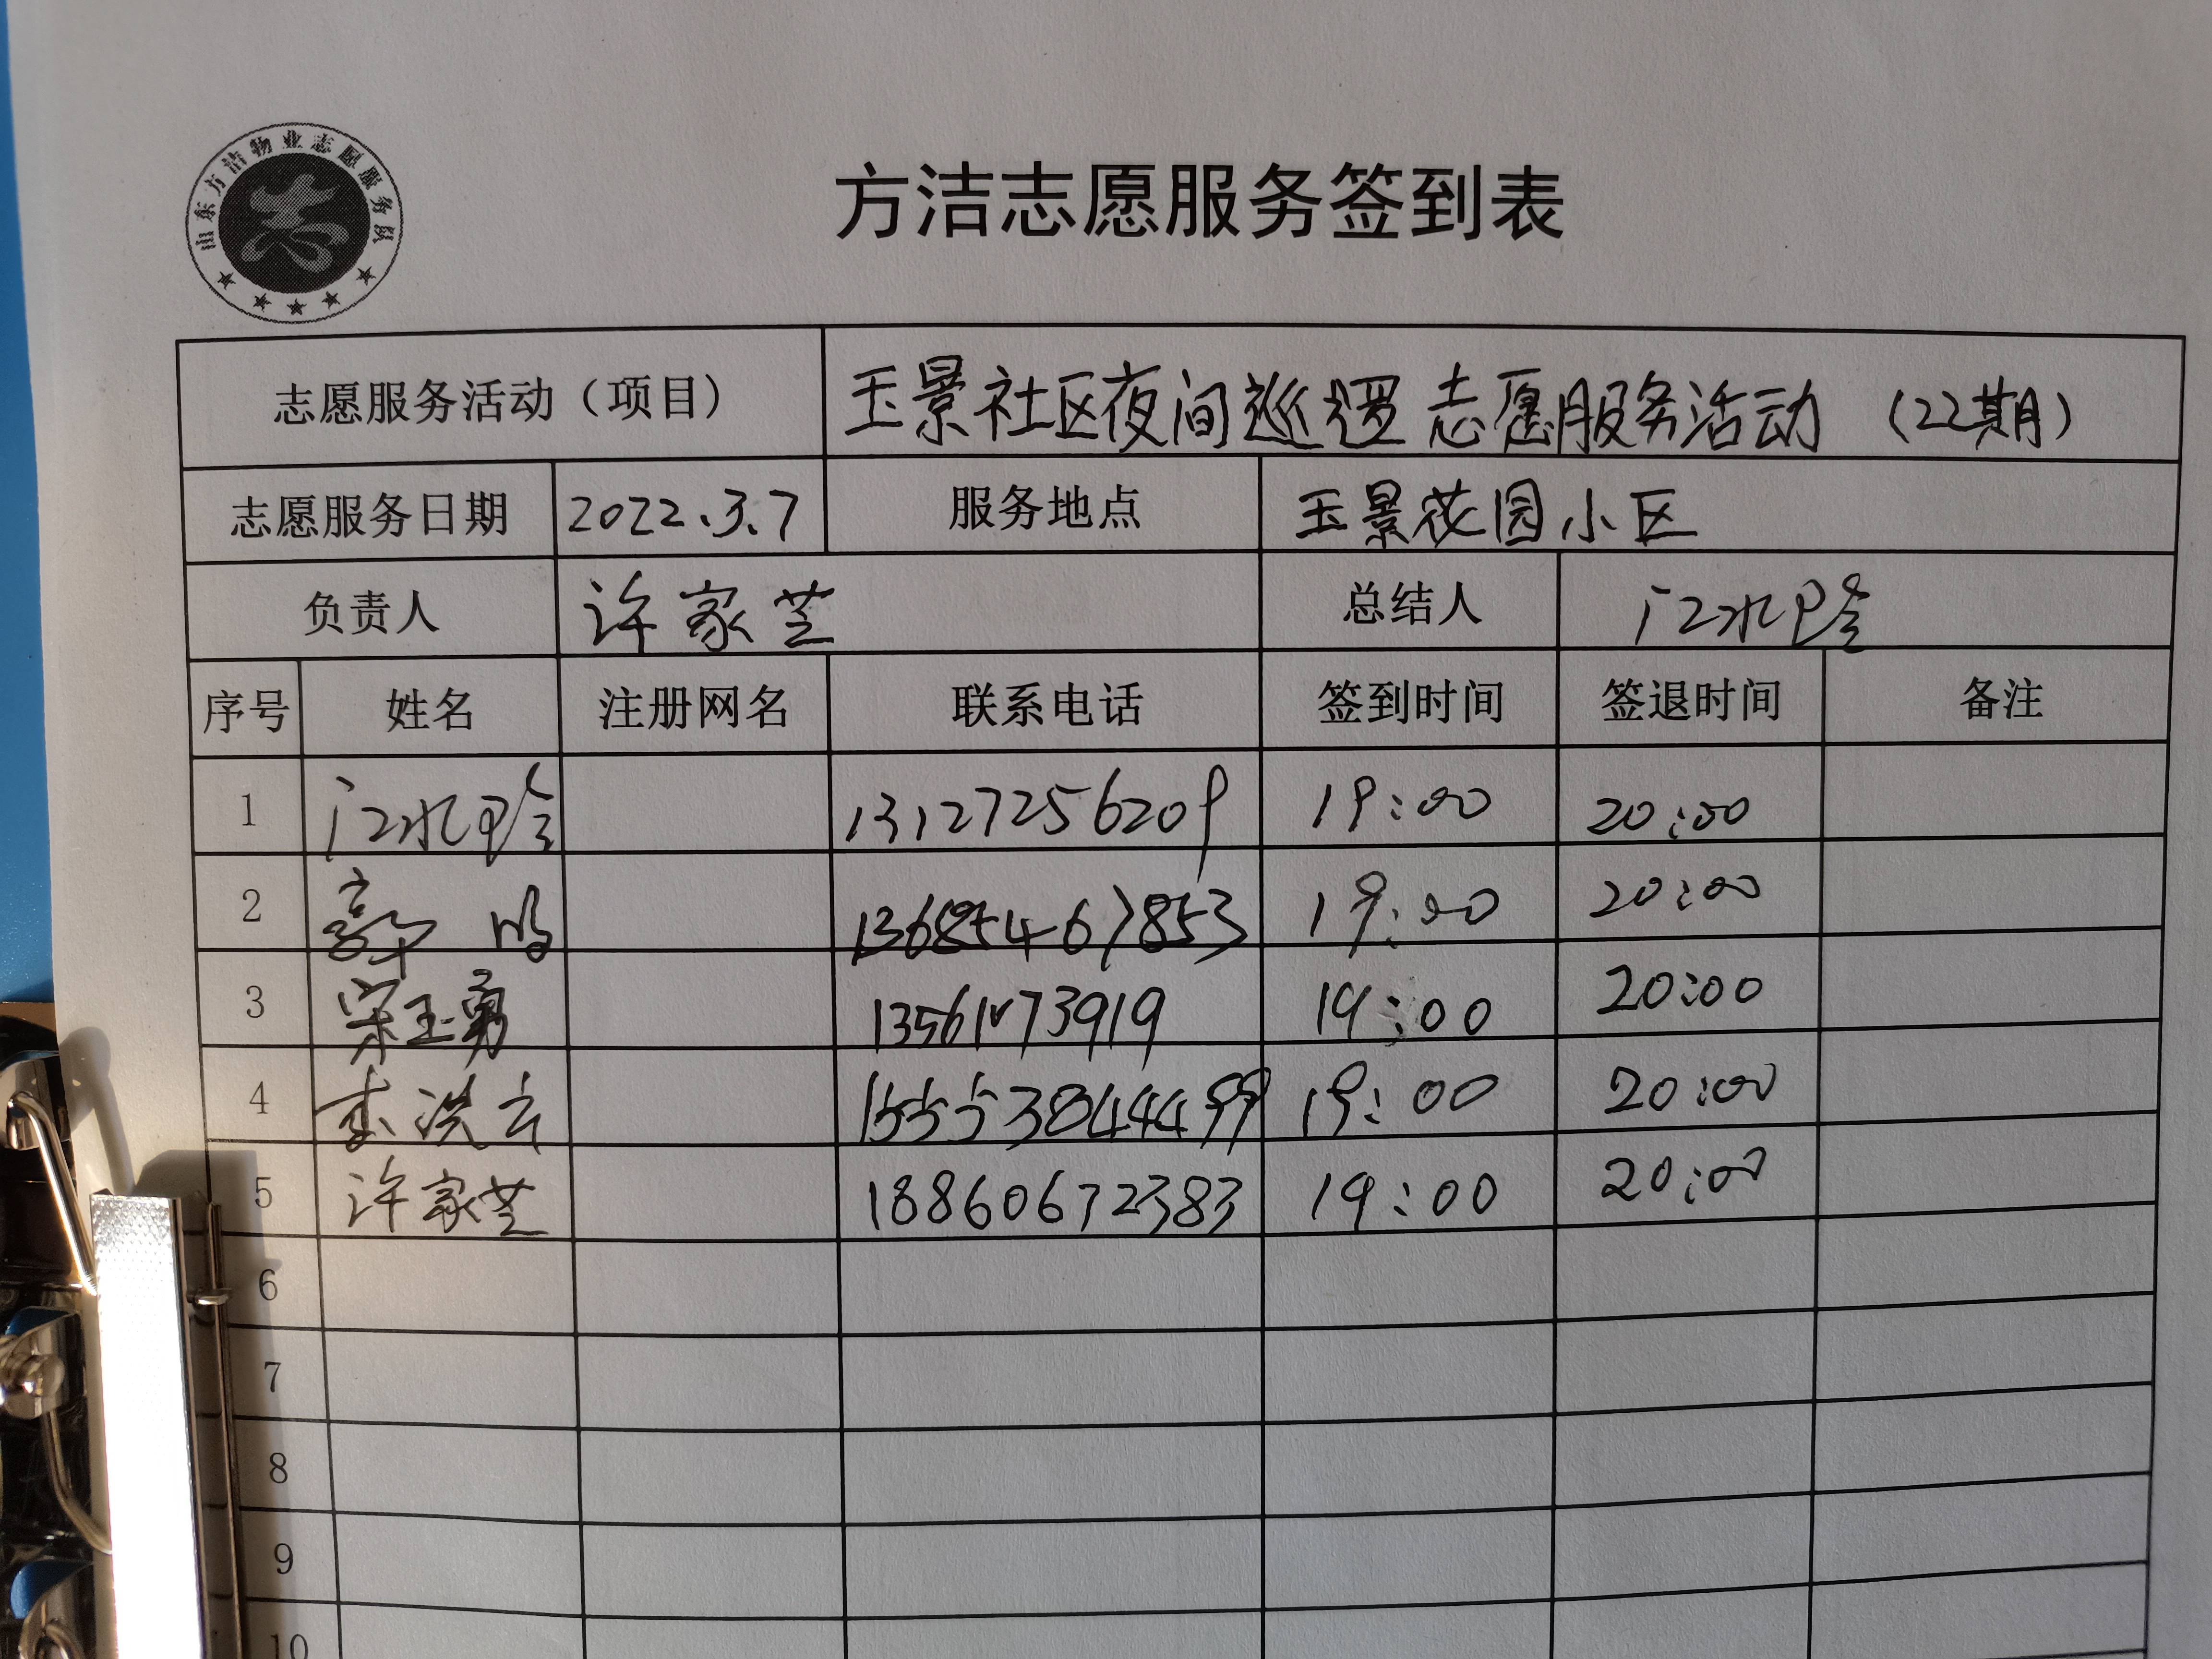 山东方洁物业志愿服务队
方洁志愿服务签到表
志愿服务活动（项目） 玉景社区夜间巡逻志愿服务活动（22期）
志愿服务日期 2022.3.7 服务地点 玉景花园小区
负责人 许家芝 总结人
序号 姓名 注册网名 联系电话 签到时间 签退时间 备注
1 13127256209 19:00 20:00
2 19:00 20:00
3 宋玉勇 19:00 20:00
4 李洪云 15553804499 19:00 20:00
5 许家芝 18860672383 19:00 20:00
6
7
8
9
10